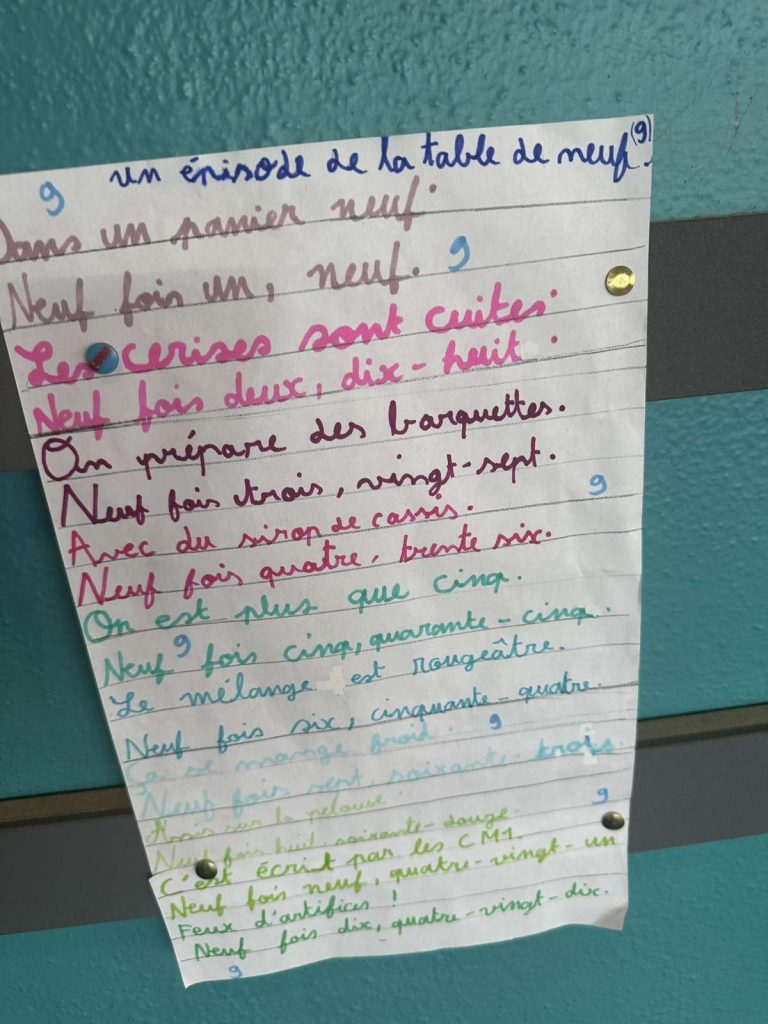 un épisode de la table de neuf. (9)
9
Dans un panier neuf.
Neuf fois un, neuf. 9
Les cerises sont cuites.
Neuf fois deux, dix-huit.
On prépare des barquettes.
Neuf fois trois, vingt-sept.
9
Avec du sirop de cassis.
Neuf fois quatre, trente six.
On est plus que cinq.
Neuf fois cinq, quarante-cinq.
9
Le mélange est rougeâtre.
Neuf fois six, cinquante-quatre.
Ça se mange froid. 9
Neuf fois sept, soixante-trois.
Assis sur la pelouse.
9
Neuf fois huit, soixante-douze.
C'est écrit par les CM1.
Neuf fois neuf, quatre-vingt-un
Feux d'artifices !
Neuf fois dix, quatre-vingt-dix.
9